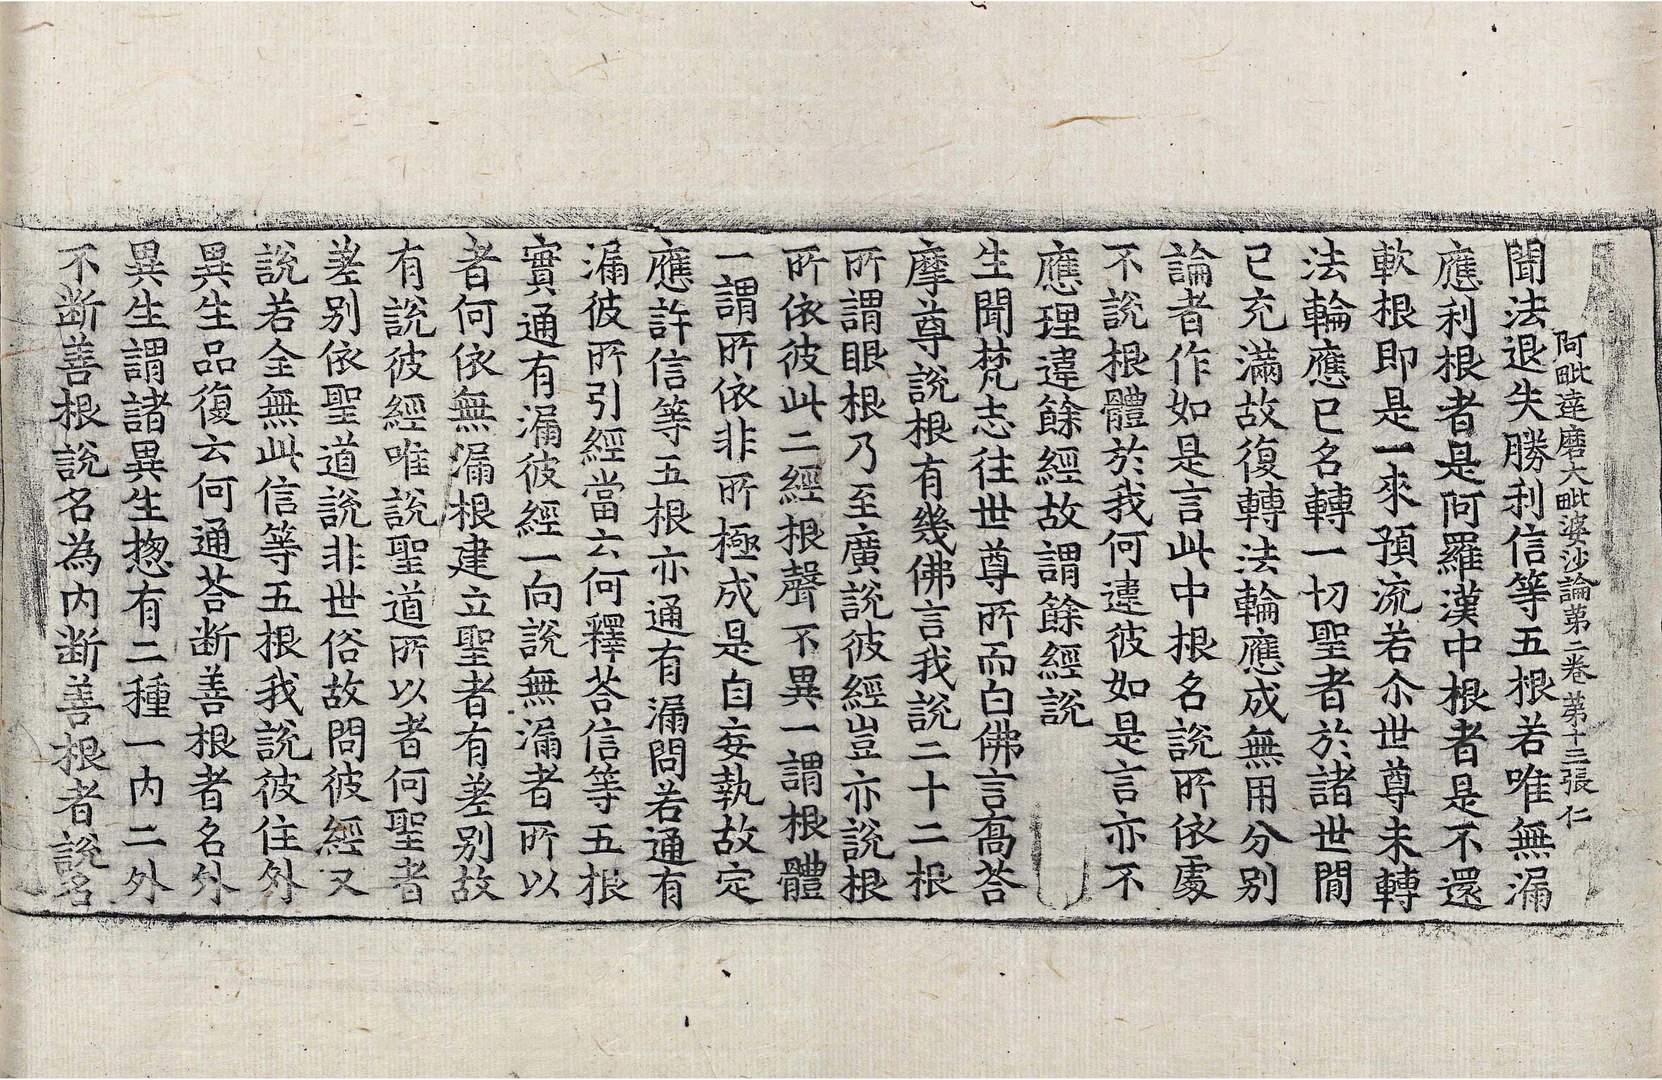 阿毗達磨大毗婆沙論第二卷 第十三張 仁
聞法退失勝利信等五根若唯無漏
應利根者是阿羅漢中根者是不還
軟根即是一來預流若尒世尊未轉
法輪應已名轉一切聖者於諸世間
已充滿故復轉法輪應成無用分別
論者作如是言此中根名說所依處
不說根體於我何違彼如是言亦不
應理違餘經故謂餘經說
生聞梵志往世尊所而白佛言喬荅
摩尊說根有幾佛言我說二十二根
所謂眼根乃至廣說彼經豈亦說根
所依彼此二經根聲不異一謂根體
一謂所依非所極成是自妄執故定
應許信等五根亦通有漏問若通有
漏彼所引經當云何釋荅信等五根
實通有漏彼經一向說無漏者所以
者何依無漏根建立聖者有差別故
有說彼經唯說聖道所以者何聖者
差別依聖道說非世俗故問彼經又
說若全無此信等五根我說彼住外
異生品復云何通荅断善根者名外
異生謂諸異生揔有二種一內二外
不断善根說名為内断善根者說名